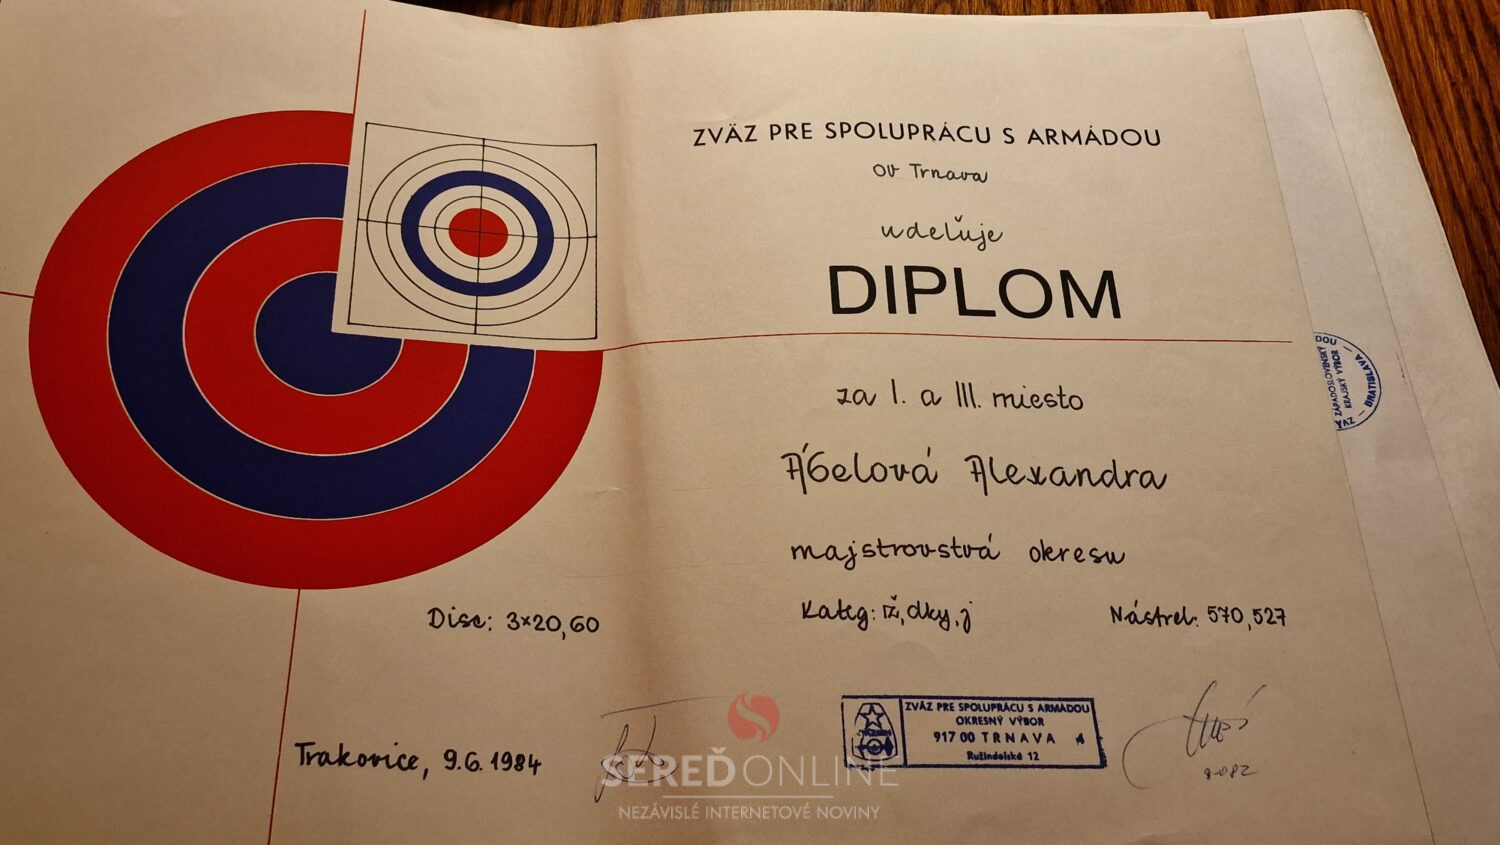 ZVÄZ PRE SPOLUPRÁCU S ARMÁDOU
OV Trnava
udeľuje
DIPLOM
za I. a III. miesto
Ábelová Alexandra
majstrovstvá okresu
Disc: 3×20,60
Kateg: ž, dky, j
Nástrel: 570,527
Trakovice, 9.6.1984
ZVÄZ PRE SPOLUPRÁCU S ARMÁDOU
OKRESNÝ VÝBOR
917 00 TRNAVA
Ružindolská 12
ZÁPADOSLOVENSKÝ
KRAJSKÝ VÝBOR
BRATISLAVA
SEREĎONLINE
NEZÁVISLÉ INTERNETOVÉ NOVINY